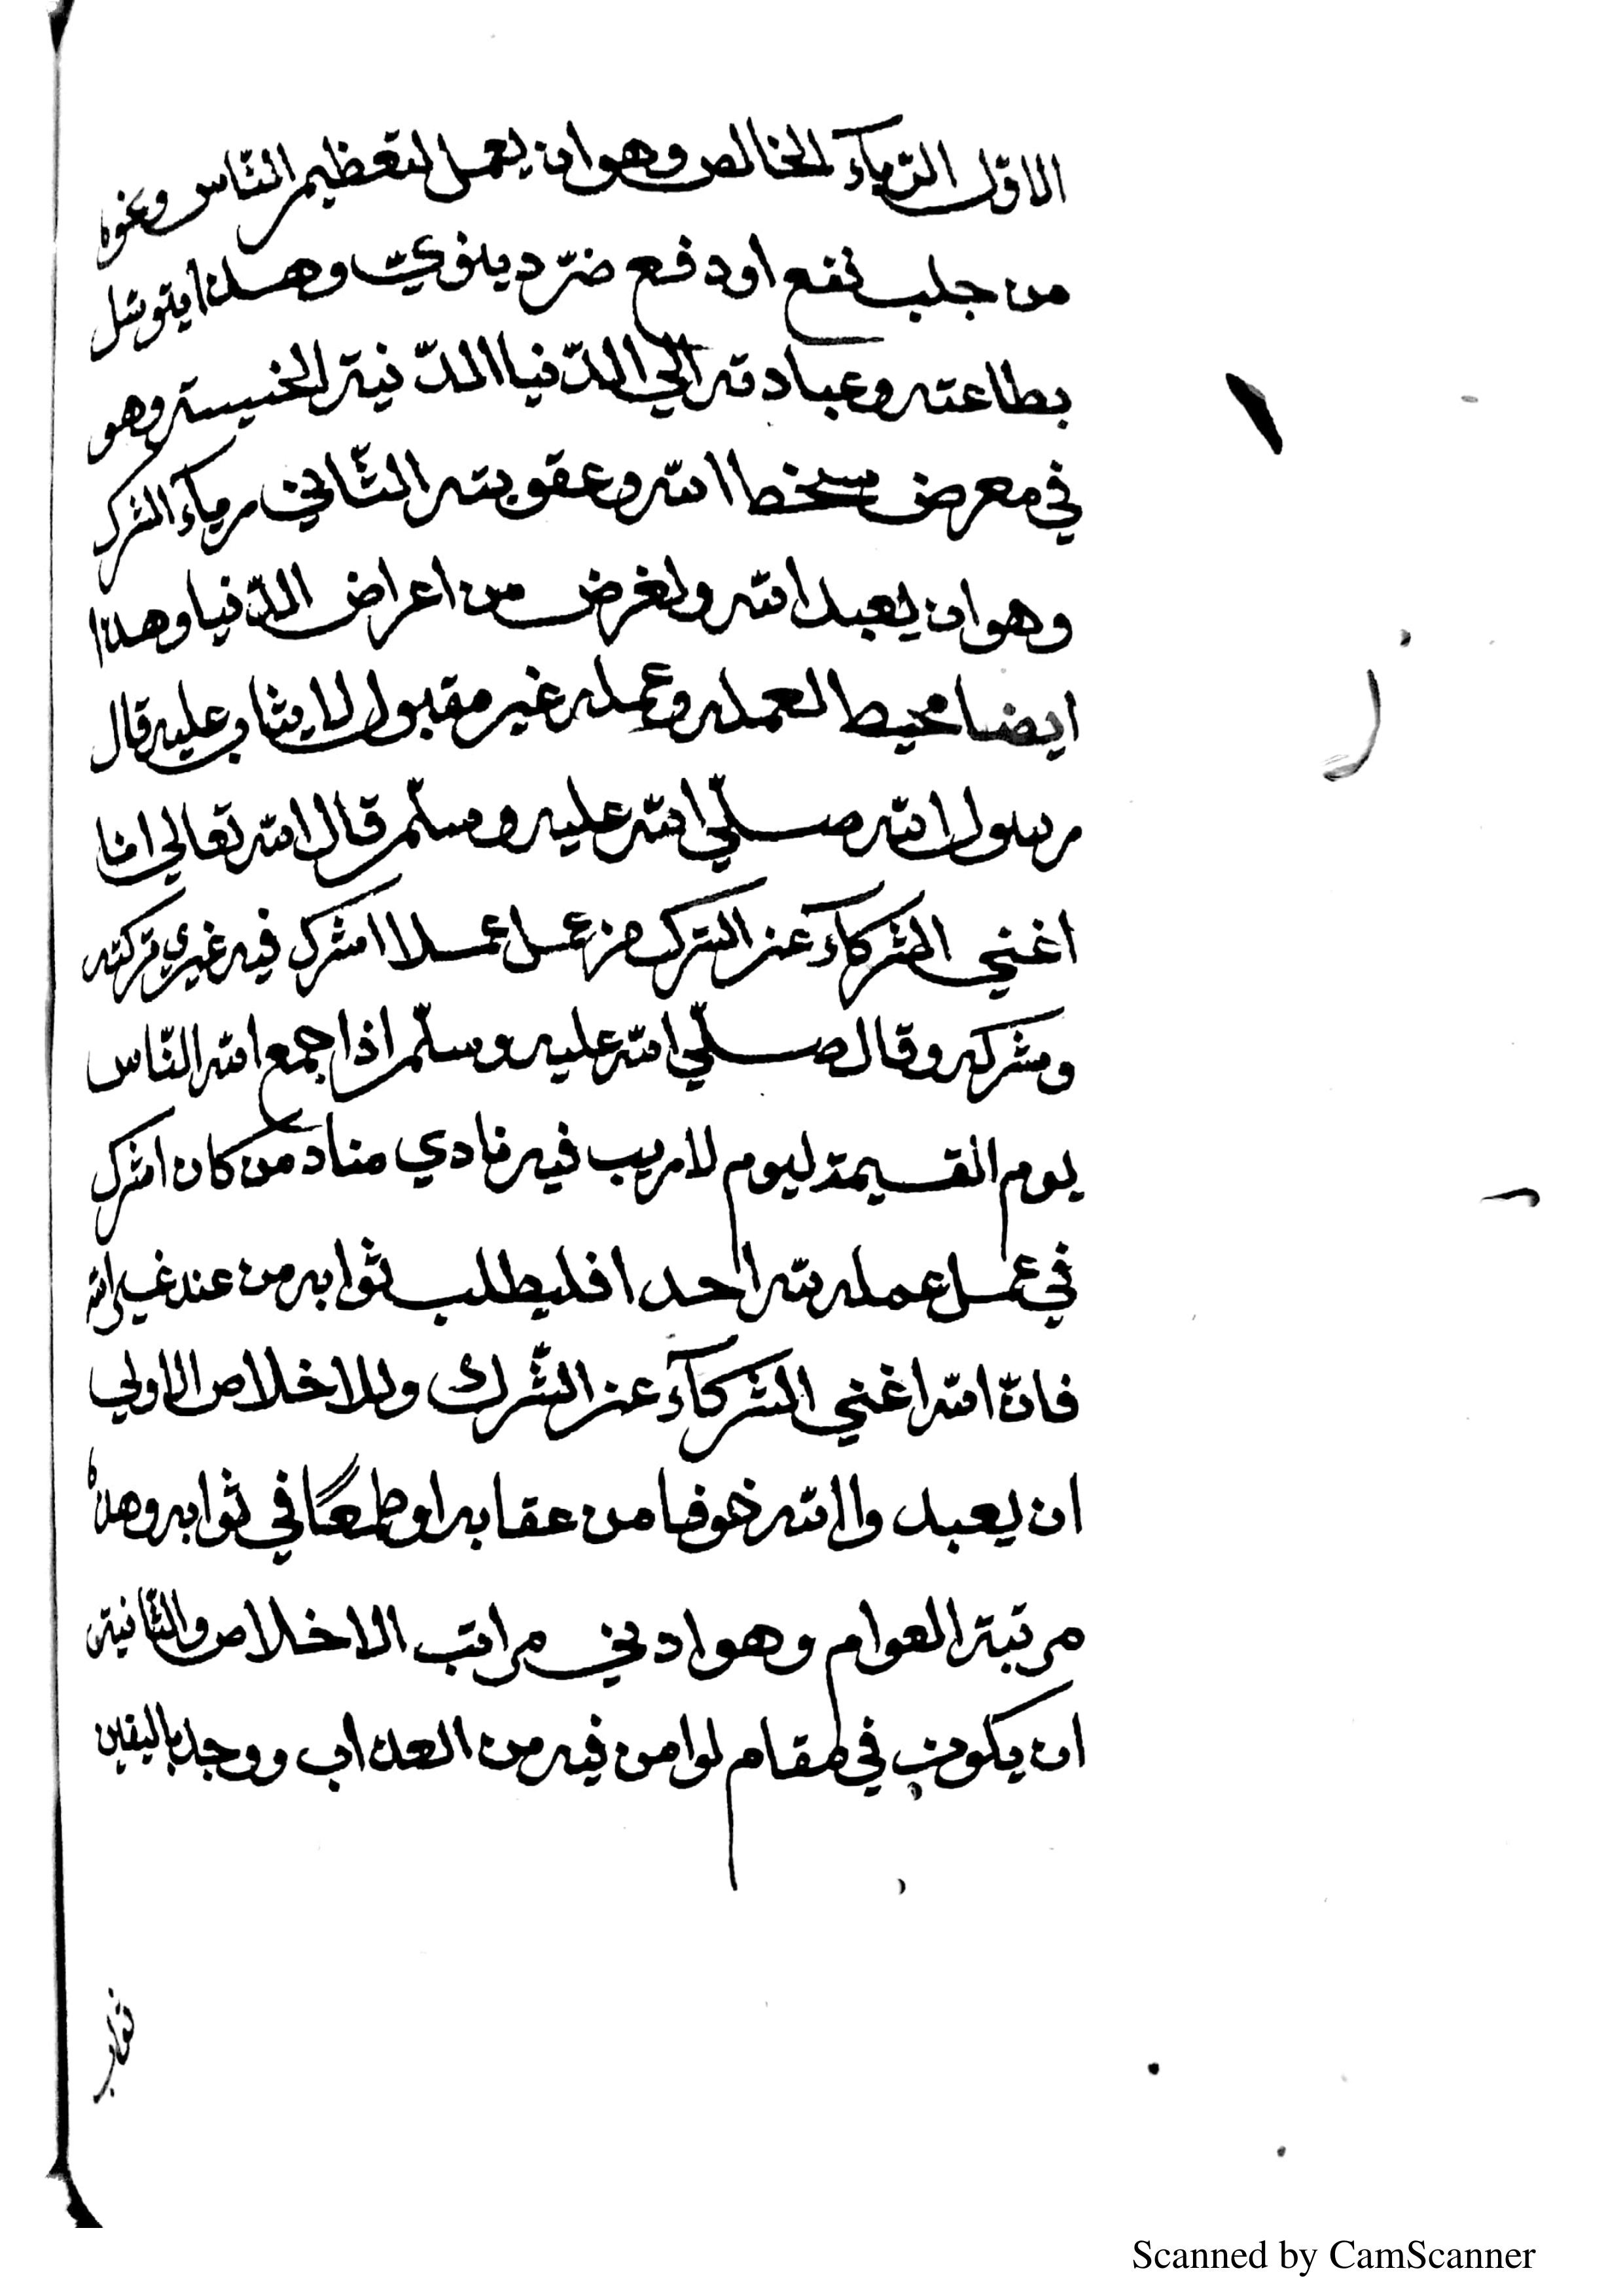 الاوّل الرّياء الخالص وهو ان يعمل لتعظيم النّاس ونحوه
من جلب نفع او دفع ضرّ دينوكيّ وهذا يتوسّل
بطاعته وعبادته الي الدّنيا الدّنية الخسيسة وهو
في معرض سخط الله وعقوبته الثّاني رياء الشرك
وهو ان يعبد الله ولغرض من اعراض الدّنيا وهذا
ايضا محيط لعمله وعمله غير مقبول لا يثاب عليه قال
رسول الله صلّي الله عليه وسلّم قال الله تعالي انا
اغني الشركاء عن الشرك من عمل عملا اشرك فيه غيري تركته
وشركه وقال صلّي الله عليه وسلّم اذا جمع الله النّاس
يوم القيمة ليوم لا ريب فيه نادي مناد من كان اشرك
في عمل عمله لله احدا فليطلب ثوابه من عند غير الله
فانّ الله اغني الشركآء عن الشّرك وللاخلاص الاولي
ان يعبد والله خوفا من عقابه او طمعًا في ثوابه وهذه
مرتبة العوام وهو ادني مراتب الاخلاص والثّانية
ان يكون في مقام لو امن فيه من العذاب ووجد باليقين
Scanned by CamScanner